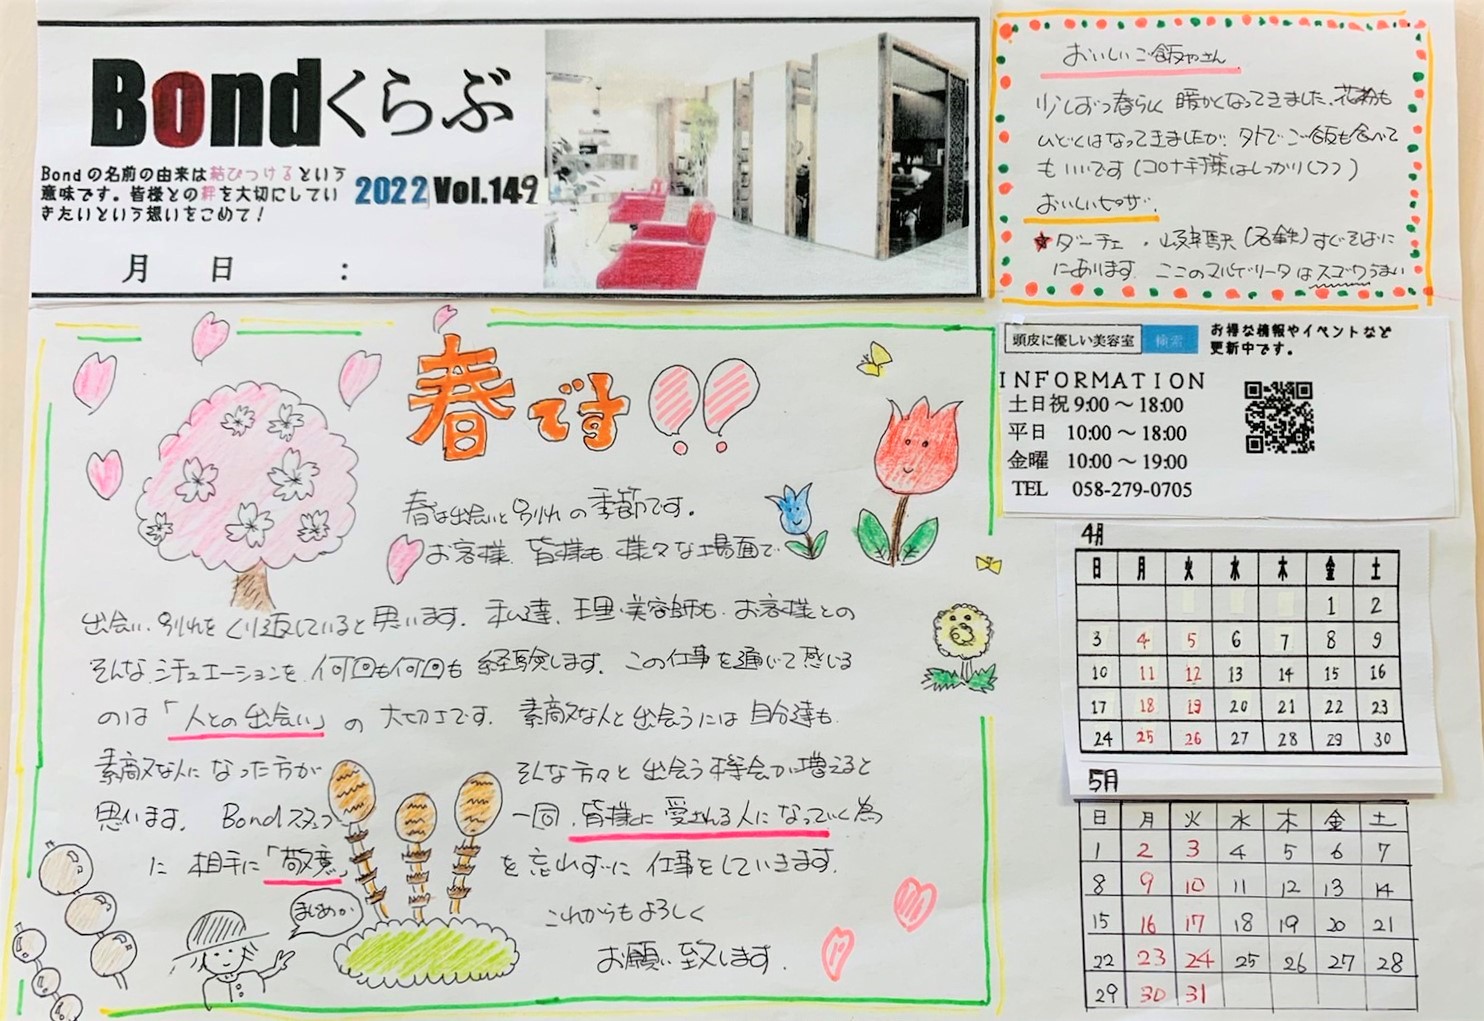 Bondくらぶ
Bondの名前の由来は結びつけるという
意味です。皆様との絆を大切にしてい
きたいという想いをこめて!
2022 Vol.149
月 日 :
おいしいご飯やさん
少しずつ春らしく 暖かくなってきました。花粉も
ひどくはなってきましたが、外でご飯も食べて
もいいです(コロナ対策はしっかりしつつ)
おいしいピザ。
★ダーチェ ・ 岐阜駅(名鉄)すぐそばに
にあります。ここのマルゲリータはスゴウうまい
春です!!
春は出会いと別れの季節です。
お客様、皆様も 様々な場面で
出会い、別れをくり返していると思います。私達、理・美容師も お客様との
そんな シチュエーションを 何回も何回も 経験します。この仕事を通して感じる
のは「人との出会い」の 大切さです。 素敵な人と出会うには 自分達も
素敵な人になった方が そんな方々と 出会う機会が増えると
思います。 Bondスタッフ 一同、皆様に 愛される人になっていく為
に 相手に「敬意」を忘れずに 仕事をしていきます。
これからもよろしく
お願い致します。
まじめか
頭皮に優しい美容室 検索
お得な情報やイベントなど
更新中です。
INFORMATION
土日祝 9:00~18:00
平日 10:00~18:00
金曜 10:00~19:00
TEL 058-279-0705
4月
日 月 火 水 木 金 土
1 2
3 4 5 6 7 8 9
10 11 12 13 14 15 16
17 18 19 20 21 22 23
24 25 26 27 28 29 30
5月
日 月 火 水 木 金 土
1 2 3 4 5 6 7
8 9 10 11 12 13 14
15 16 17 18 19 20 21
22 23 24 25 26 27 28
29 30 31